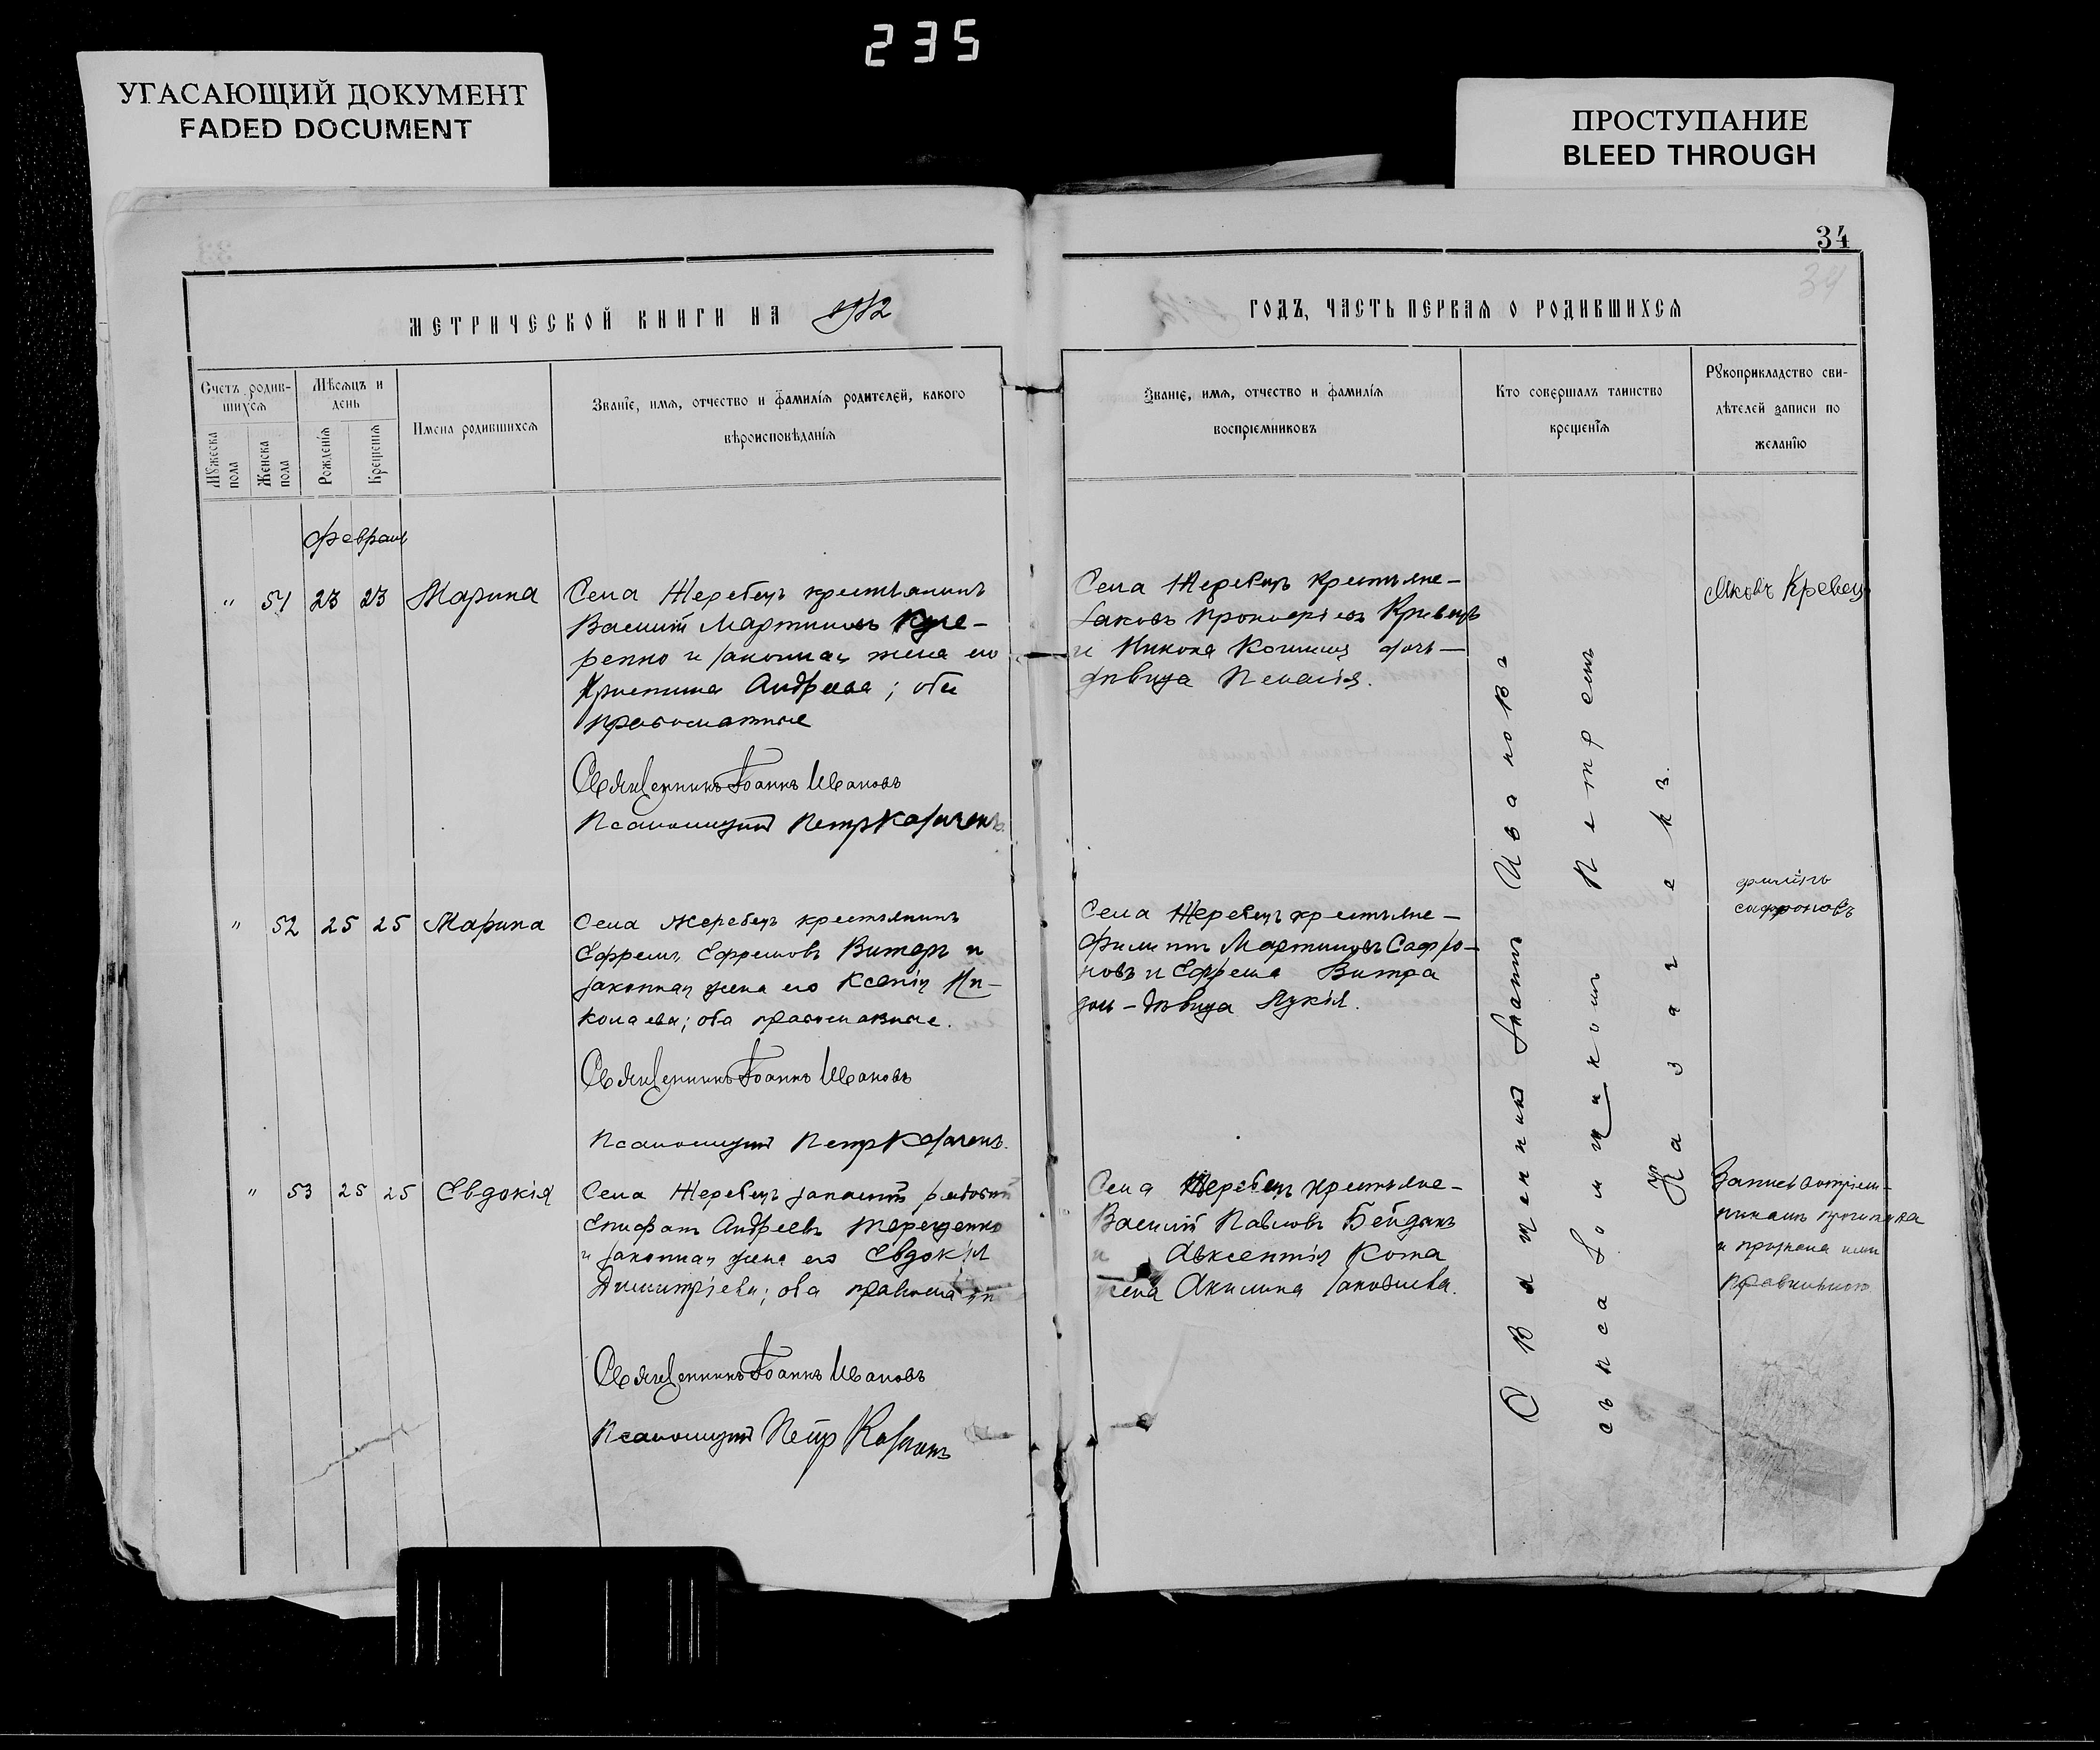 235
УГАСАЮЩИЙ ДОКУМЕНТ
FADED DOCUMENT
ПРОСТУПАНИЕ
BLEED THROUGH
34
34
МЕТРИЧЕСКОЙ КНИГИ НА 1912
Счетъ родив-
шихся
Мѣсяцъ и
день
Мужеска
пола
Женска
пола
Рожденія
Крещенія
Имена родившихся
Званіе, имя, отчество и фамилія родителей, какого
вѣроисповѣданія
Февраль
" 51 23 23 Марина
Села Жеребецъ крестьянинъ
Василій Мартиновъ
и законная жена его
Христина Андреева; оба
православные
Священникъ Іоаннъ Ивановъ
Псаломщикъ Петръ Казачекъ
" 52 25 25 Марина
Села Жеребецъ крестьянинъ
Ефремъ Ефремовъ Витеръ и
законная жена его Ксенія Ни-
колаева; оба православные.
Священникъ Іоаннъ Ивановъ
Псаломщикъ Петръ Казачекъ.
" 53 25 25 Евдокія
Села Жеребецъ запасный рядовой
Епифанъ Андреевъ Терещенко
и законная жена его Евдокія
Димитріева; оба
Священникъ Іоаннъ Ивановъ
Псаломщикъ Петръ Казачекъ
ГОДЪ, ЧАСТЬ ПЕРВАЯ О РОДИВШИХСЯ
Званіе, имя, отчество и фамилія
воспріемниковъ
Кто совершалъ таинство
крещенія
Рукоприкладство сви-
дѣтелей записи по
желанію
Села Жеребецъ крестьяне-
Іаковъ Прокопіевъ Кривецъ
и дочь-
дѣвица Пелагія.
Села Жеребецъ крестьяне-
Филиппъ Мартиновъ Сафро-
новъ и Ефрема Витра
дочь-дѣвица Лукія.
Села Жеребецъ крестьяне-
Василій Павловъ Бейдикъ
и Авксентія Кота
жена Акилина Іаковлева.
Священникъ Іоаннъ Ивановъ
съ псаломщикомъ Петромъ
Казачекъ.
Яковъ Кревець
Филипъ
сафроновъ
Запись воспріем-
никамъ прочитана
и признана ими
правильною